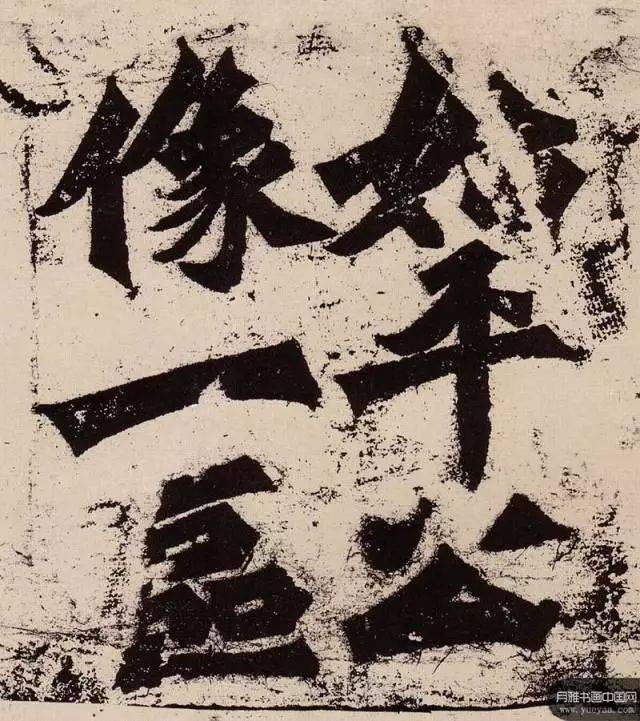 始平公
像一區
月雅书画中国网
www.yueyaa.com